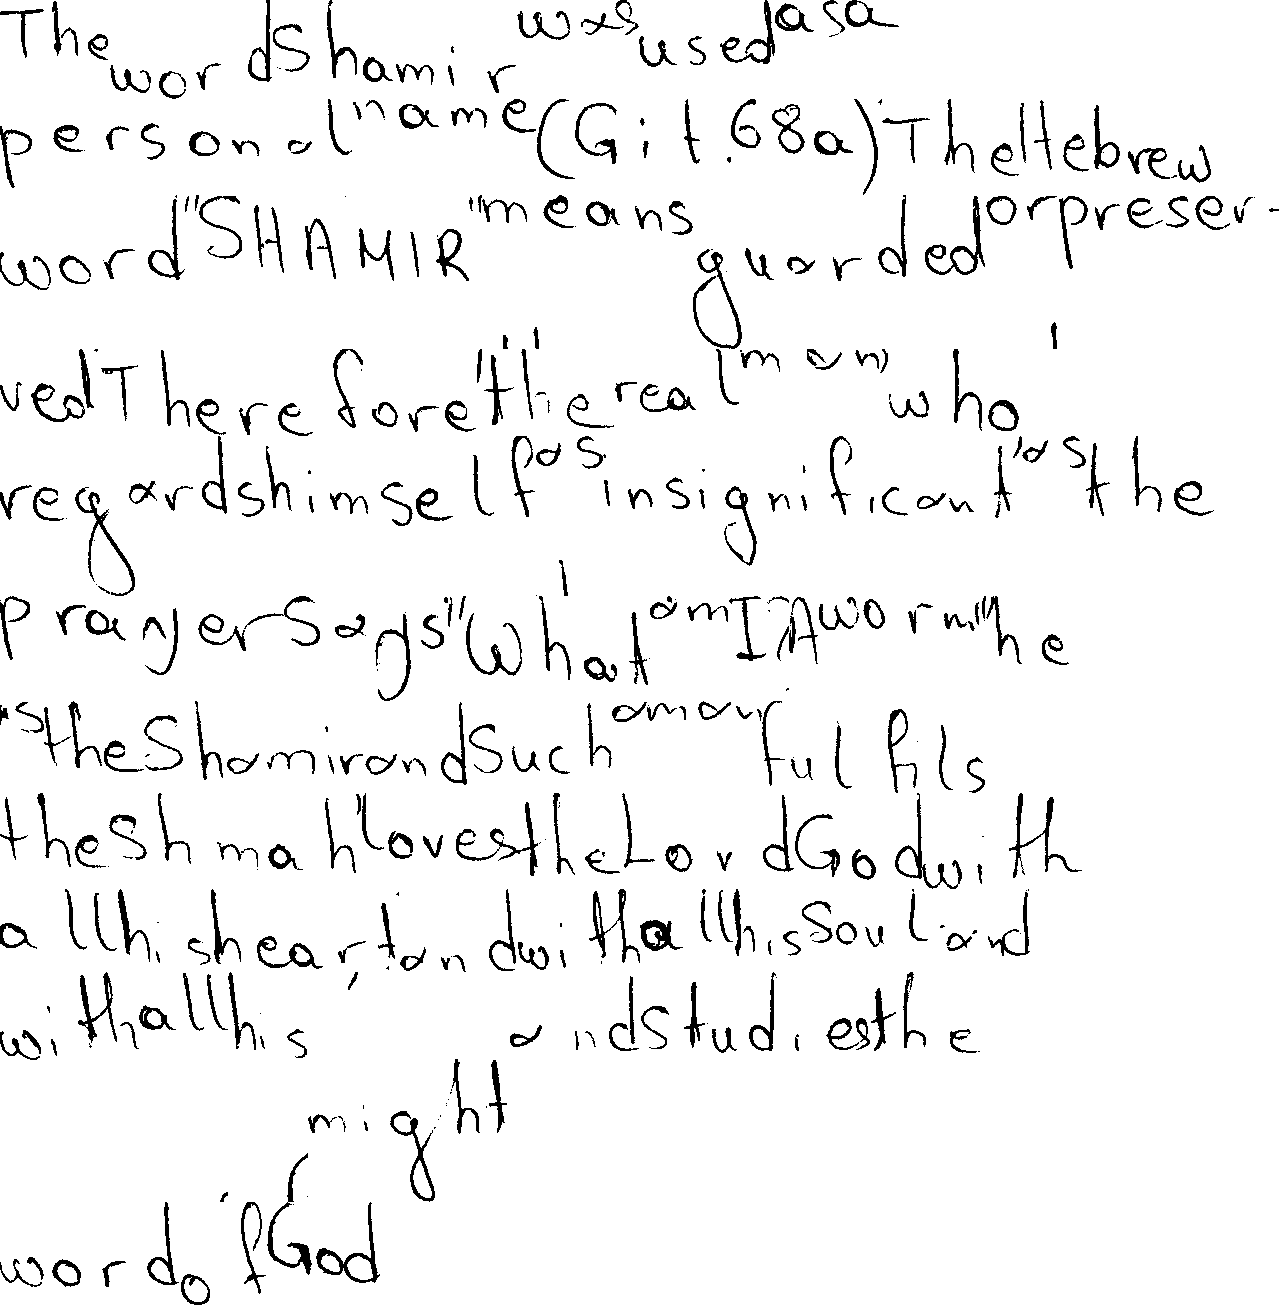 The word Shamir was used as a
personal name (Git.68a) The Hebrew
word "SHAMIR" means guarded or preser-
ved Therefore "the real man" who
regards himself as insignificant as the
prayer says "What am I A worm" he
is the Shamir and such a man fulfils
the Shmah loves the Lord God with
all his heart, and with all his soul and
with all his might and studies the
word of God